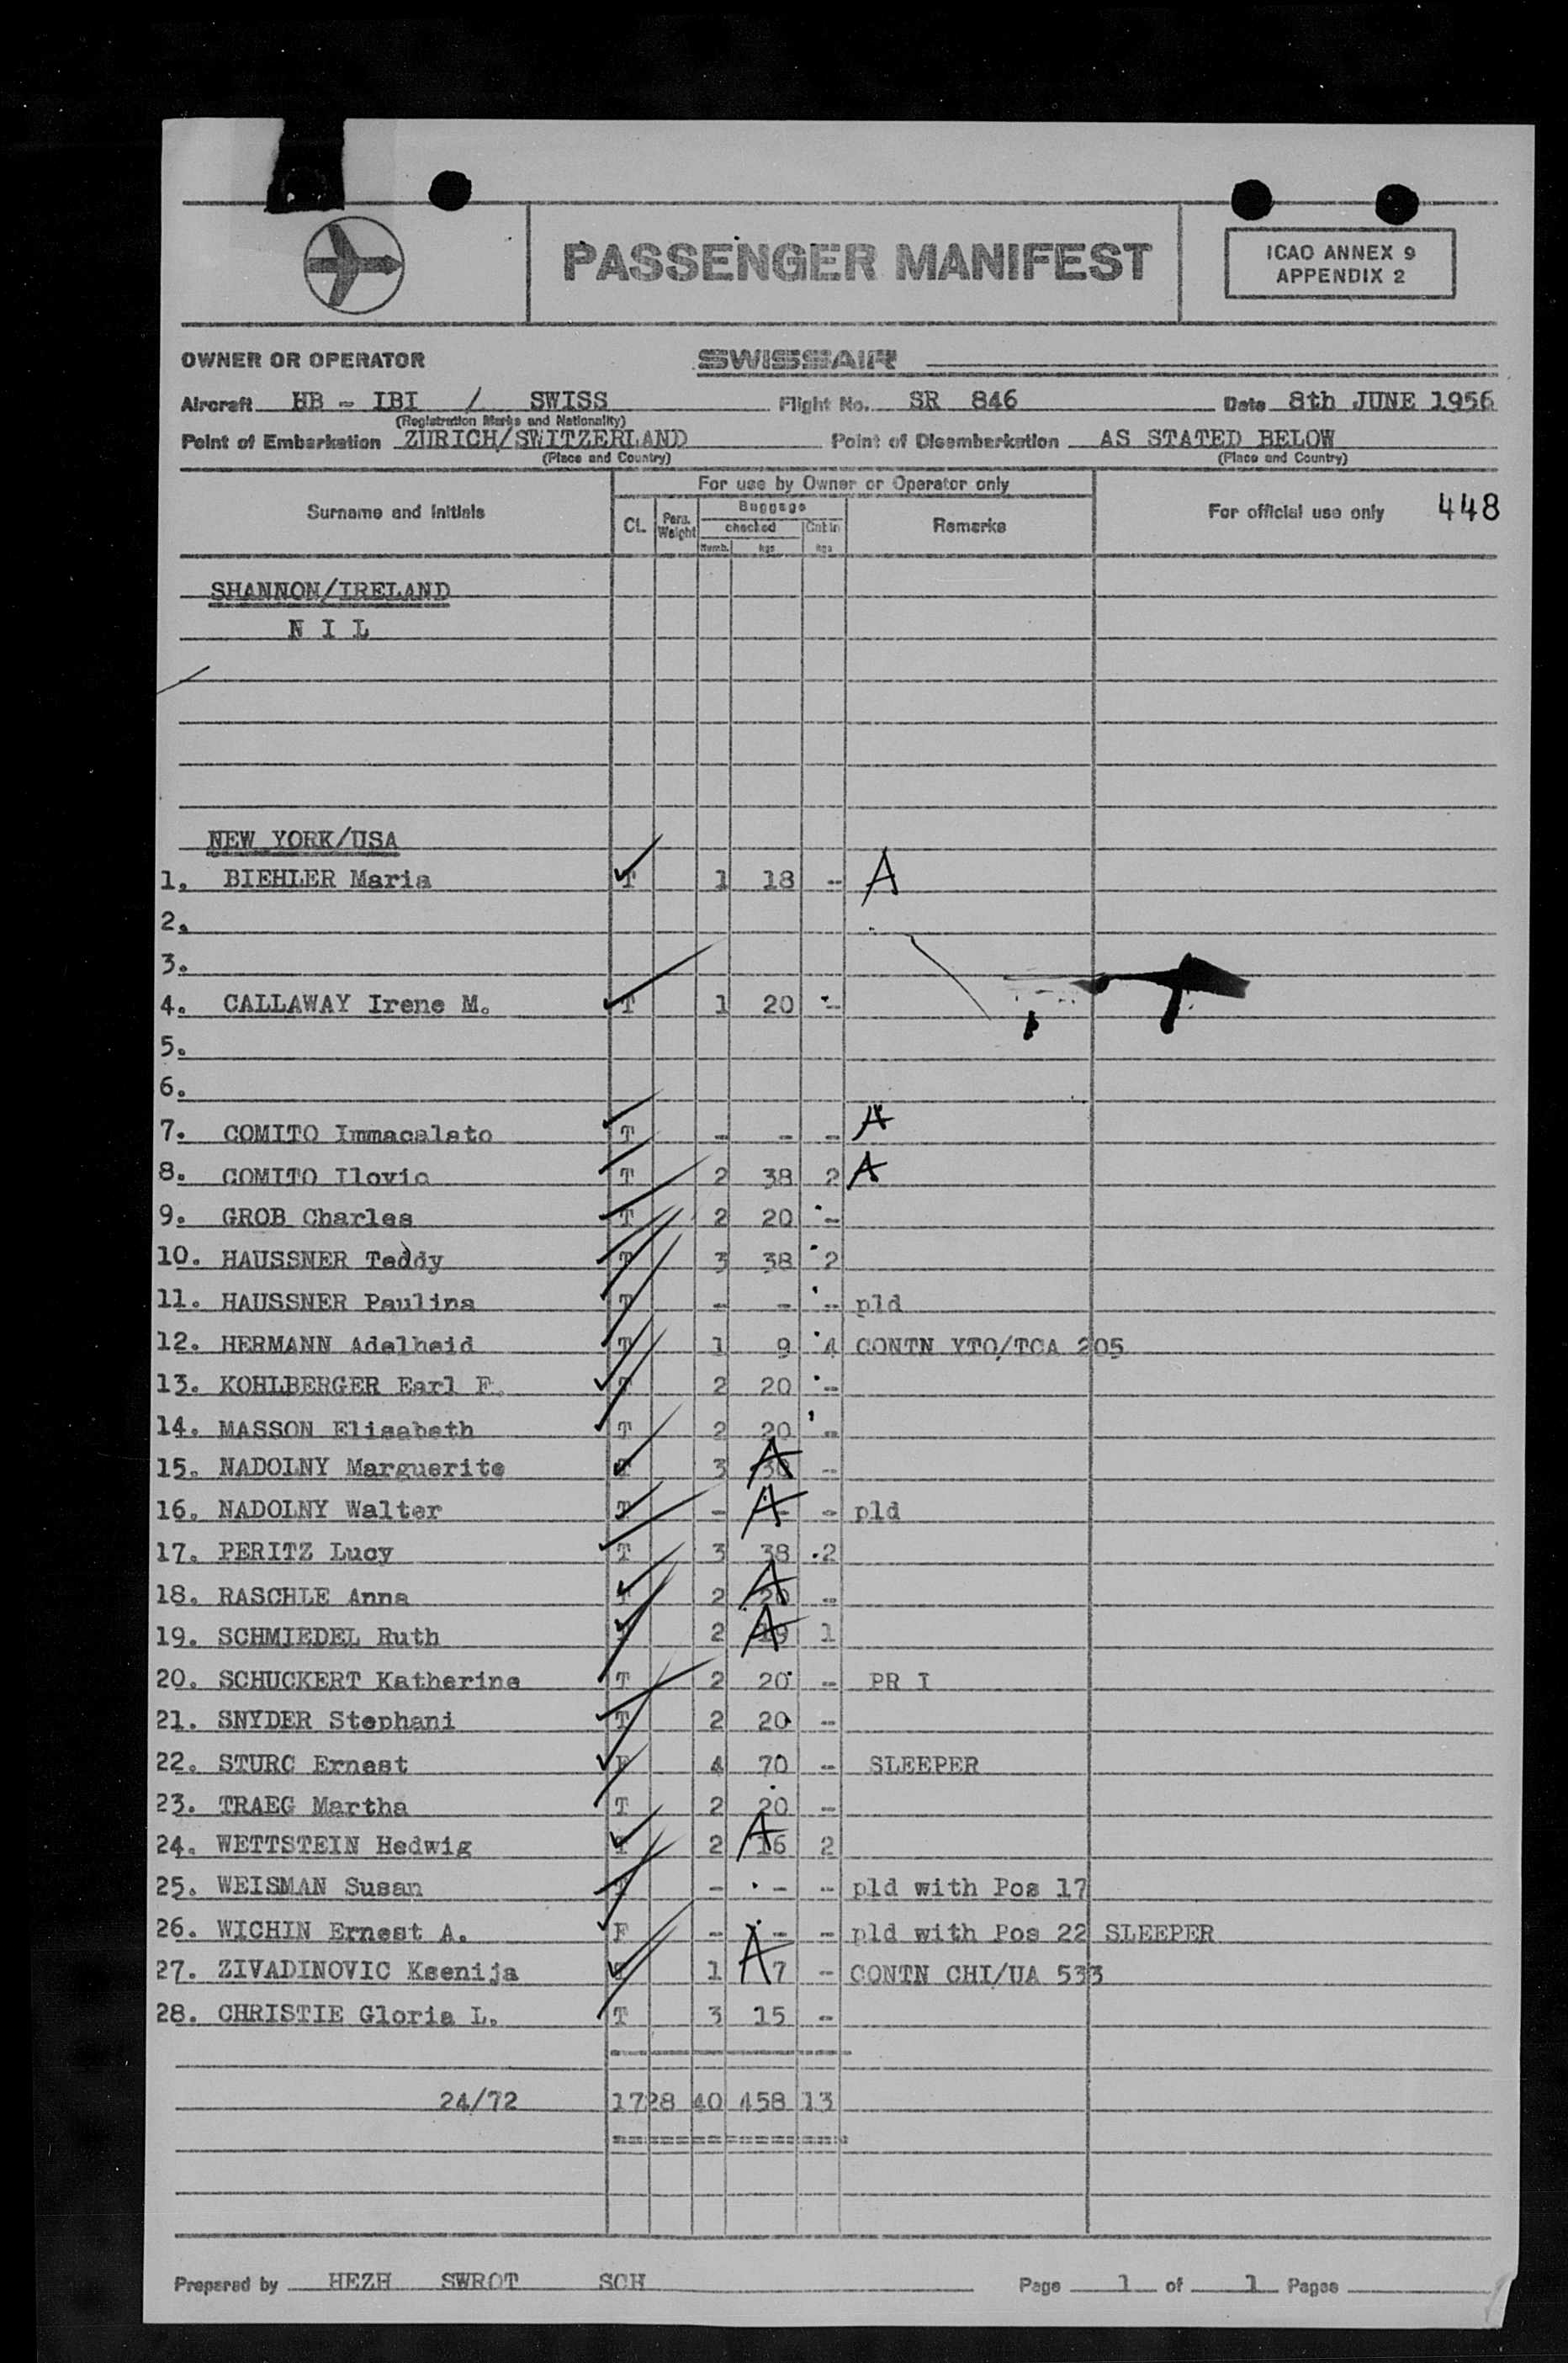 PASSENGER MANIFEST
ICAO ANNEX 9
APPENDIX 2
OWNER OR OPERATOR SWISSAIR
Aircraft HB - IBI / SWISS Flight No. SR 846 Date 8th JUNE 1956
(Registration Marks and Nationality)
Point of Embarkation ZURICH/SWITZERLAND Point of Disembarkation AS STATED BELOW
(Place and Country) (Place and Country)
For use by Owner or Operator only
Surname and Initials CL. Pers. Weight Baggage checked Numb. kgs Cabin kgs Remarks For official use only 448
SHANNON/IRELAND
N I L
NEW YORK/USA
1. BIEHLER Maria T 1 18 - A
2.
3.
4. CALLAWAY Irene M. T 1 20 -
5.
6.
7. COMITO Immacalato T - - - A
8. COMITO Ilovio T 2 38 2 A
9. GROB Charles T 2 20 -
10. HAUSSNER Teddy T 3 38 2
11. HAUSSNER Paulina T - - - pld
12. HERMANN Adelheid T 1 9 4 CONTN YTO/TCA 205
13. KOHLBERGER Earl F. T 2 20 -
14. MASSON Elisabeth T 2 20 -
15. NADOLNY Marguerite T 3 30 A -
16. NADOLNY Walter T - - A - pld
17. PERITZ Lucy T 3 38 2
18. RASCHLE Anna T 2 20 A -
19. SCHMIEDEL Ruth T 2 19 A 1
20. SCHUCKERT Katherine T 2 20 - PR I
21. SNYDER Stephani T 2 20 -
22. STURC Ernest F 4 70 - SLEEPER
23. TRAEG Martha T 2 20 -
24. WETTSTEIN Hedwig T 2 A 16 2
25. WEISMAN Susan T - - - pld with Pos 17
26. WICHIN Ernest A. F - - - pld with Pos 22 SLEEPER
27. ZIVADINOVIC Ksenija T 1 A 7 - CONTN CHI/UA 533
28. CHRISTIE Gloria L. T 3 15 -
24/72 1728 40 458 13
Prepared by HEZH SWROT SCH Page 1 of 1 Pages